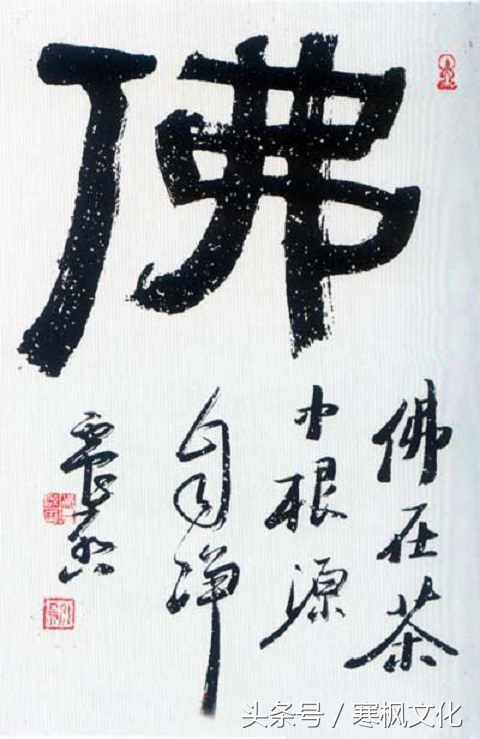 佛
佛在茶
中根源
自净
头条号 / 寒枫文化